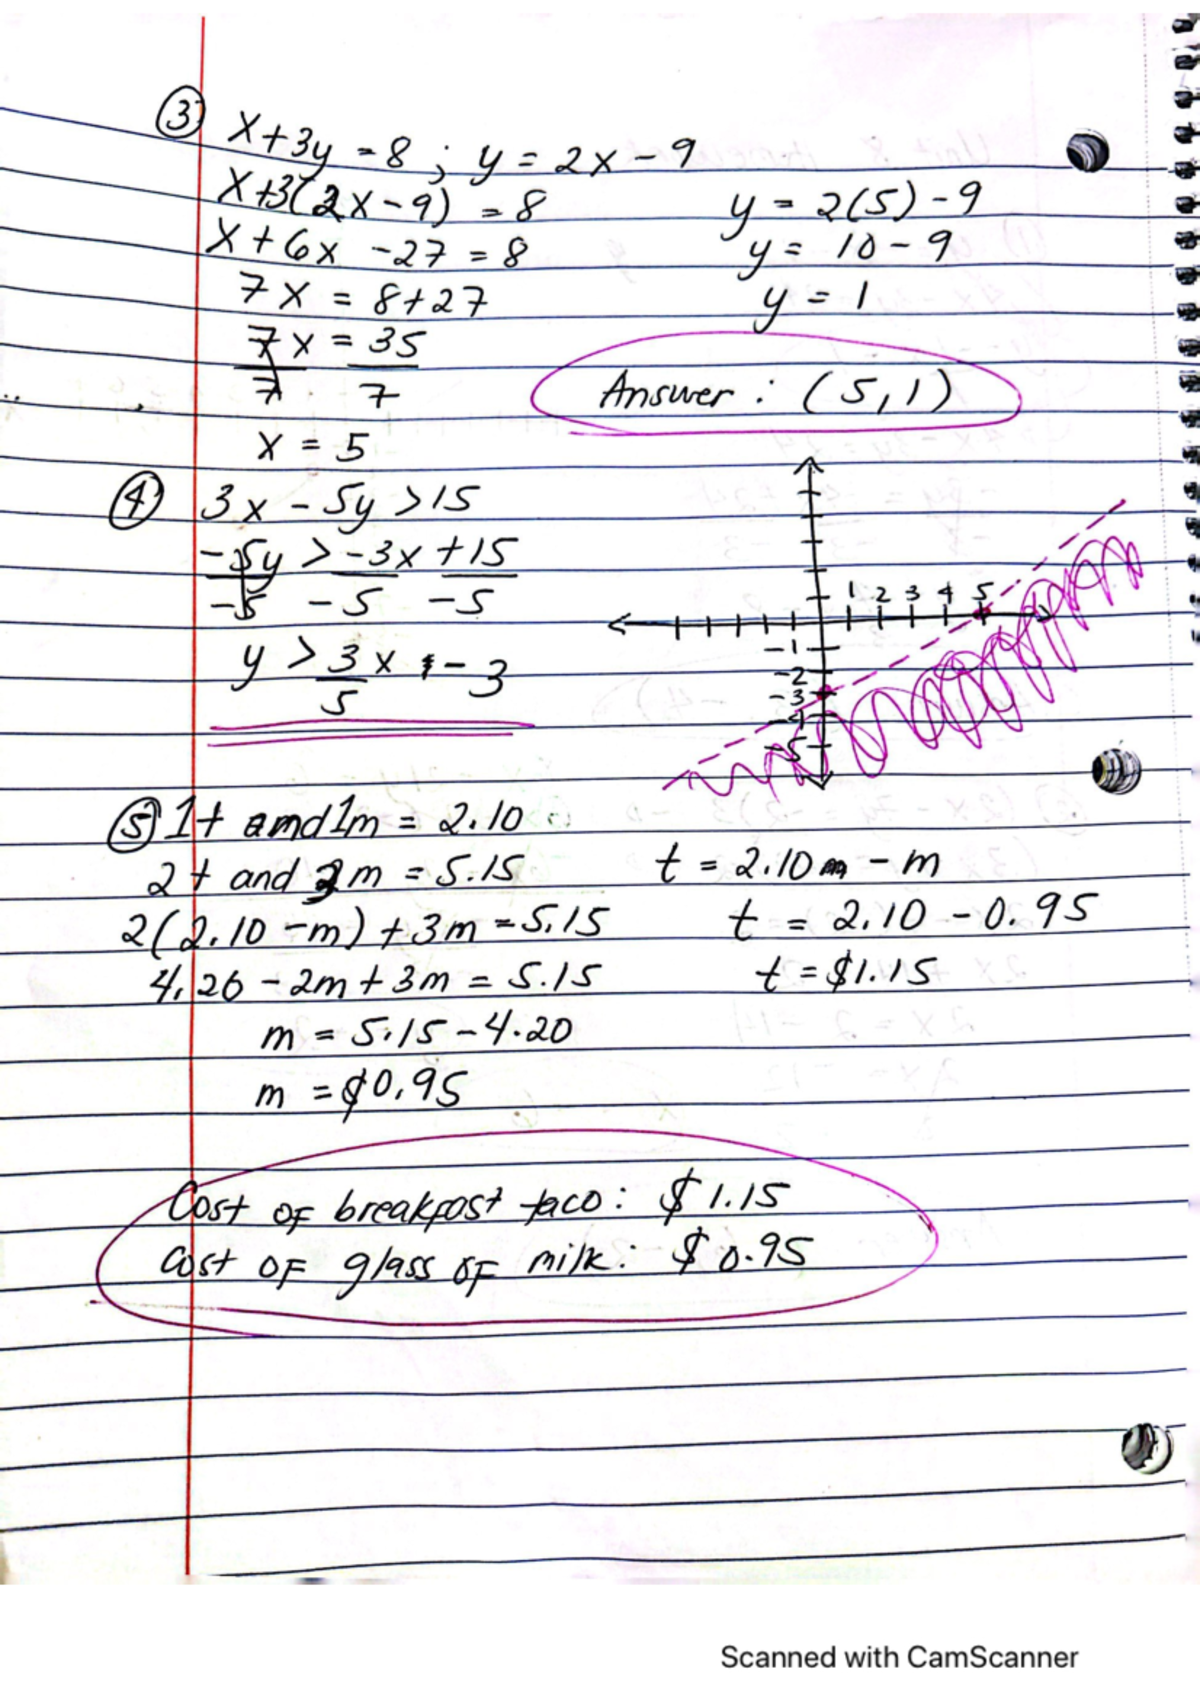 ③ x+3y = 8 ; y = 2x - 9
x+3(2x-9) = 8
x + 6x - 27 = 8
7x = 8+27
7x = 35
7 7
x = 5
y = 2(5) - 9
y = 10 - 9
y = 1
Answer : (5,1)
④ 3x - 5y > 15
-5y > -3x + 15
-5 -5 -5
y > 3 x - 3
5
1 2 3 4 5
-1
-2
-3
-4
-5
⑤ 1t amd 1m = 2.10
2t and 3m = 5.15
2(2.10 - m) + 3m = 5.15
4.20 - 2m + 3m = 5.15
m = 5.15 - 4.20
m = $0.95
t = 2.10 - m
t = 2.10 - 0.95
t = $1.15
Cost of breakfast taco: $1.15
Cost of glass of milk: $0.95
Scanned with CamScanner